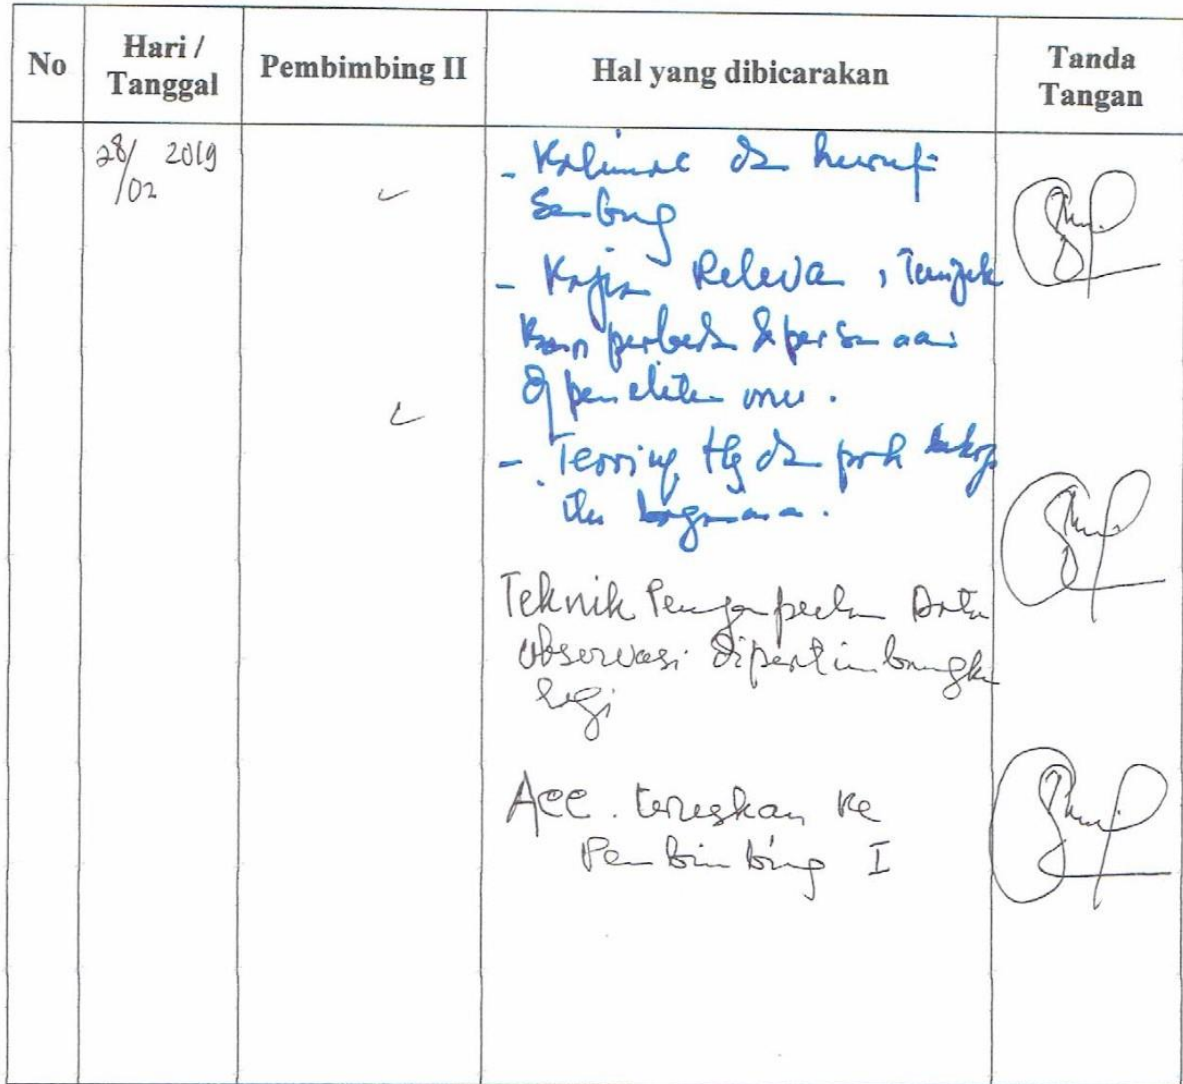 No
Hari /
Tanggal
Pembimbing II
Hal yang dibicarakan
Tanda
Tangan
28/02 2019
- Kalimat dan huruf
Sambung
- Kajian Relevan, Tunjuk
kan perbedaan & persamaan
penelitianmu.
- Teori
itu bagaimana.
Teknik Pengumpulan Data
Observasi dipertimbangkan
lagi
Acc. teruskan ke
Pembimbing I